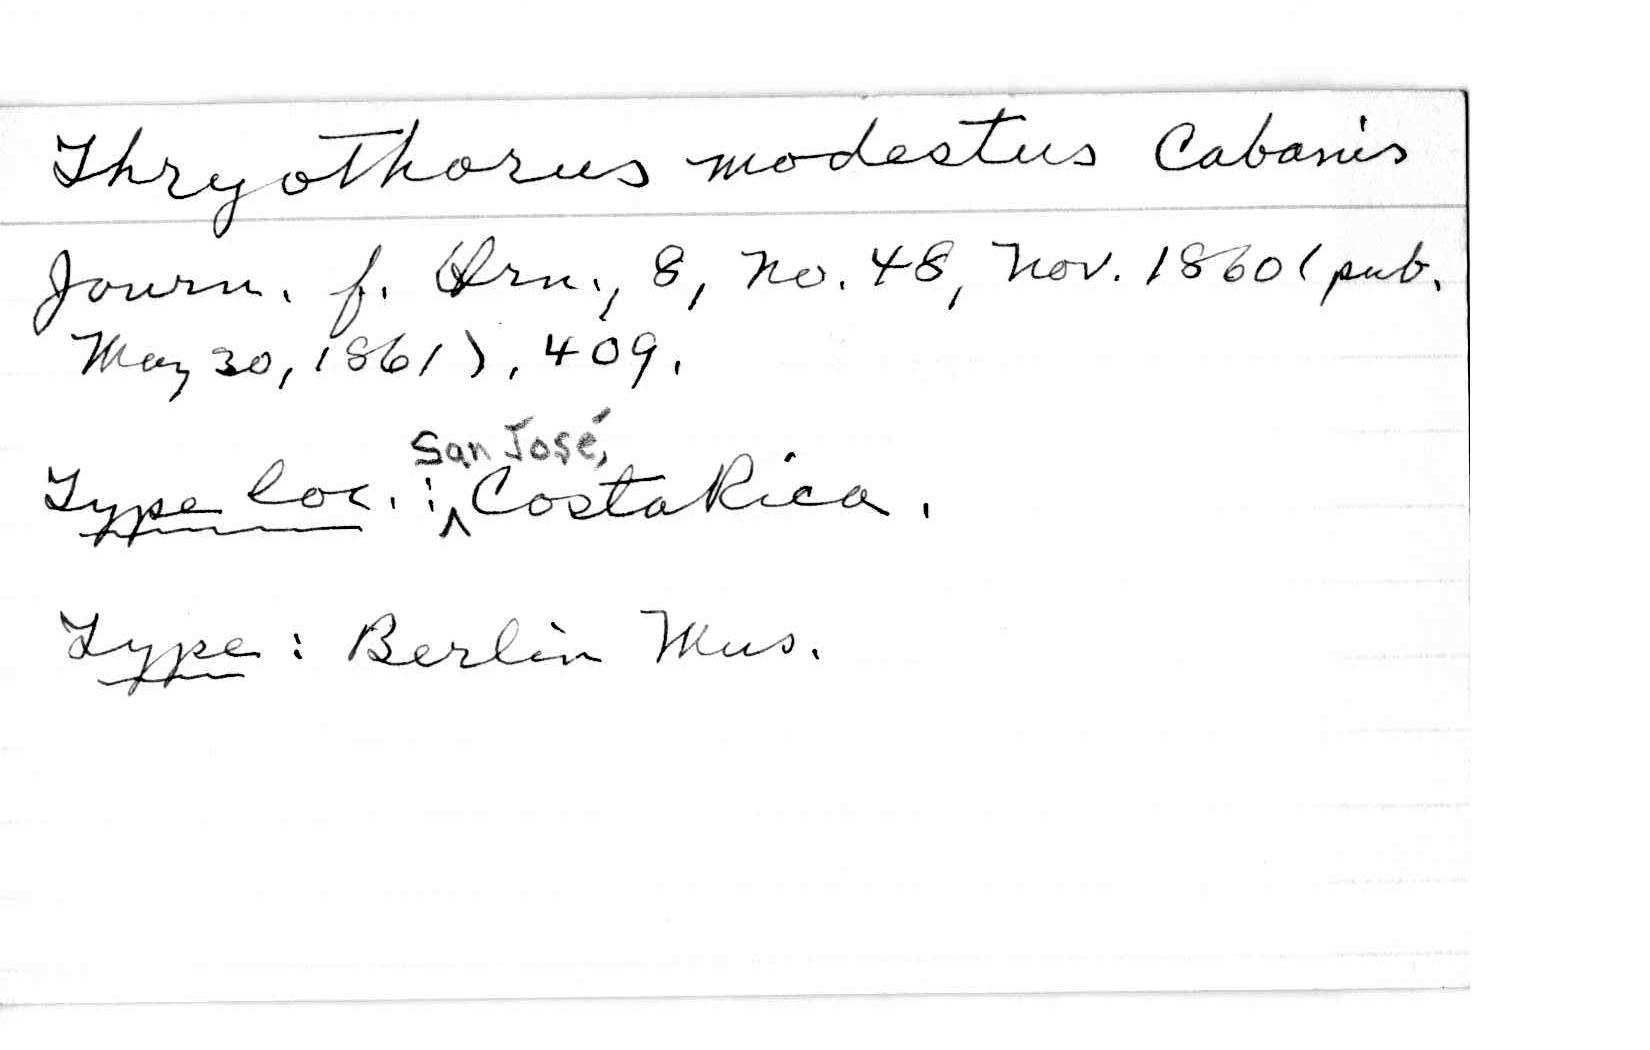 Thryothorus modestus Cabanis
Journ. f. Orn., 8, no. 48, Nov. 1860 (pub.
May 30, 1861), 409.
Type loc.: San José, Costa Rica.
Type: Berlin Mus.